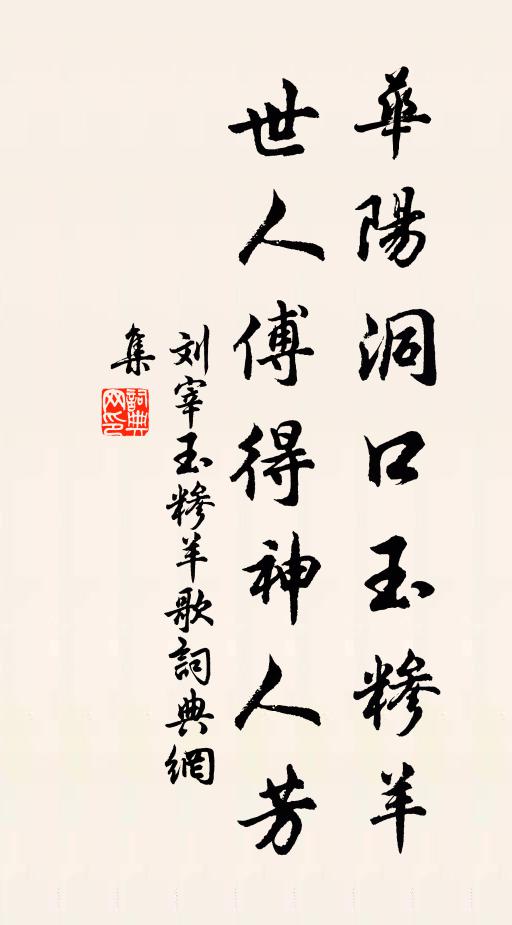 華陽洞口玉糝羊
世人傅得神人芳
刘宰玉糝羊歌詞典網
集
詞典
网印